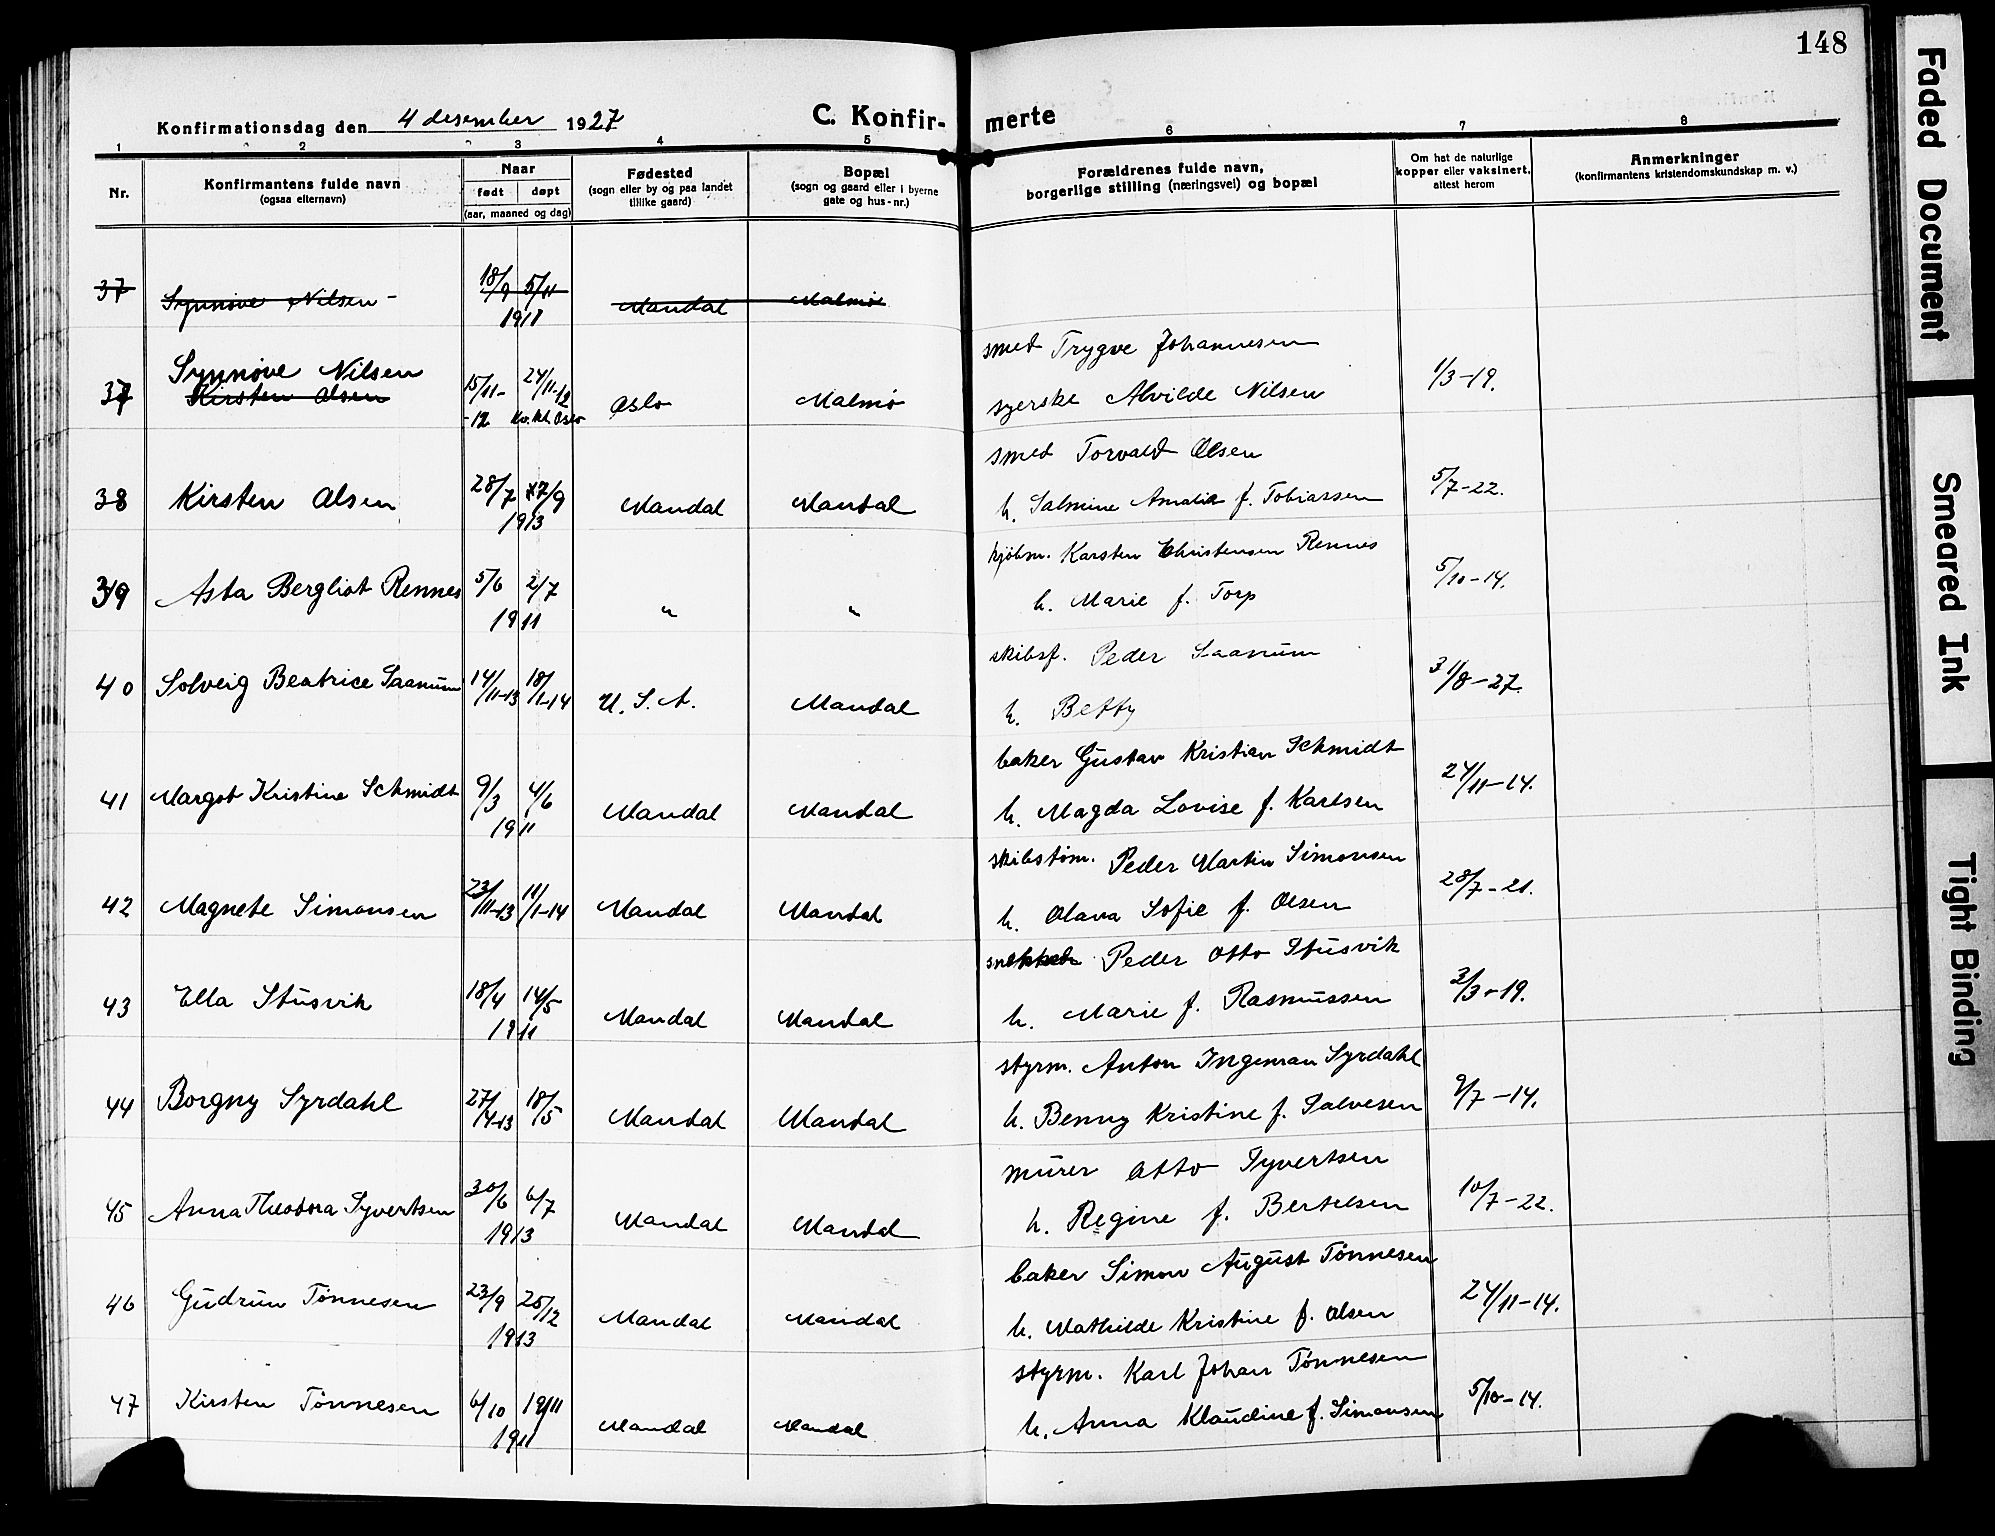 148
Konfirmationsdag den 4 desember 1927
C. Konfir- merte
1 2 3 4 5 6 7 8
Nr.
Konfirmantens fulde navn
(ogsaa efternavn)
Naar
født døpt
(aar, maaned og dag)
Fødested
(sogn eller by og paa landet
tillike gaard)
Bopæl
(sogn og gaard eller i byerne
gate og hus-nr.)
Forældrenes fulde navn,
borgerlige stilling (næringsvei) og bopæl
Om hat de naturlige
kopper eller vaksinert,
attest herom
Anmerkninger
(konfirmantens kristendomskundskap m. v.)
37 Synnøve Nilsen - 18/9 5/11 Mandal Malmø
1911
smed Trygve Johannesen
Synnøve Nilsen
37 Kirsten Olsen 15/11- 24/11-12 Oslo Malmø syerske Alvilde Nilsen 1/3-19.
-12 Kv.kl. Oslo
smed Torvald Olsen
38 Kirsten Olsen 28/7 7/9 Mandal Mandal h. Salmine Amalia f. Tobiassen 5/7-22.
1913
kjøbm. Karsten Christensen Rennes
39 Asta Bergliot Rennes 5/6 2/7 " " h. Marie f. Torp 5/10-14.
1911
skibsf. Peder Saanum
40 Solveig Beatrice Saanum 14/11-13 18/1-14 U.S.A. Mandal h. Betty 31/8-27.
baker Gustav Kristian Schmidt
41 Margot Kristine Schmidt 9/3 4/6 Mandal Mandal h. Magda Lovise f. Karlsen 24/11-14.
1911
skibstøm. Peder Martin Simonsen
42 Magnete Simonsen 23/11-13 11/1-14 Mandal Mandal h. Olava Sofie f. Olsen 28/7-21.
snekker Peder Otto Stusvik
43 Ella Stusvik 18/4 14/5 Mandal Mandal h. Marie f. Rasmussen 3/3-19.
1911
styrm. Anton Ingeman Syrdahl
44 Borgny Syrdahl 27/4-13 18/5 Mandal Mandal h. Benny Kristine f. Salvesen 9/7-14.
murer Otto Syvertsen
45 Anna Theodora Syvertsen 30/6 6/7 Mandal Mandal h. Regine f. Bertelsen 10/7-22.
1913
baker Simon August Tønnesen
46 Gudrun Tønnesen 23/9 25/12 Mandal Mandal h. Mathilde Kristine f. Olsen 24/11-14.
1913
styrm. Karl Johan Tønnesen
47 Kirsten Tønnesen 6/10 19/11 Mandal Mandal h. Anna Klaudine f. Simonsen 5/10-14.
1911
Faded Document
Smeared Ink
Tight Binding